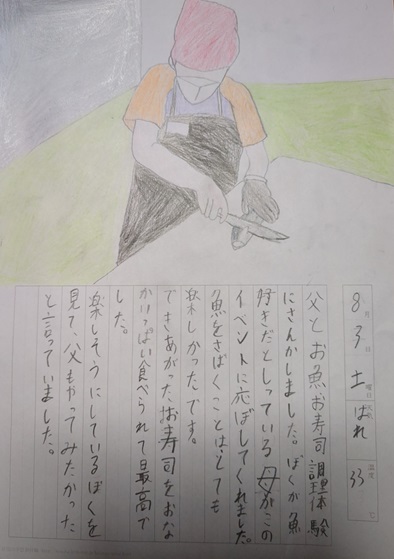 8月3日土曜日 天気 はれ 温度 33℃
父とお魚お寿司調理体験
にさんかしました。ぼくが魚
好きだとしっている母がこの
イベントに応ぼしてくれました。
魚をさばくことは、とても
楽しかったです。
できあがったお寿司をおな
かいっぱい食べられて最高で
した。
楽しそうにしているぼくを
見て、父もやってみたかった
と言っていました。